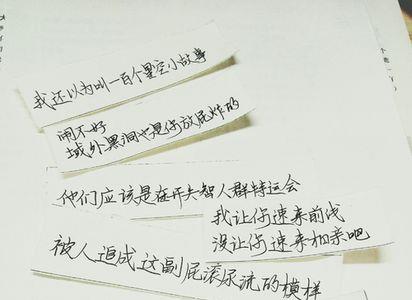 我还以为叫一百个星空小故事
闹不好
域外黑洞也是你放屁炸的
他们应该是在开失智人群特运会
我让你速来前线
没让你速来相亲吧
被人追成这副屁滚尿流的模样